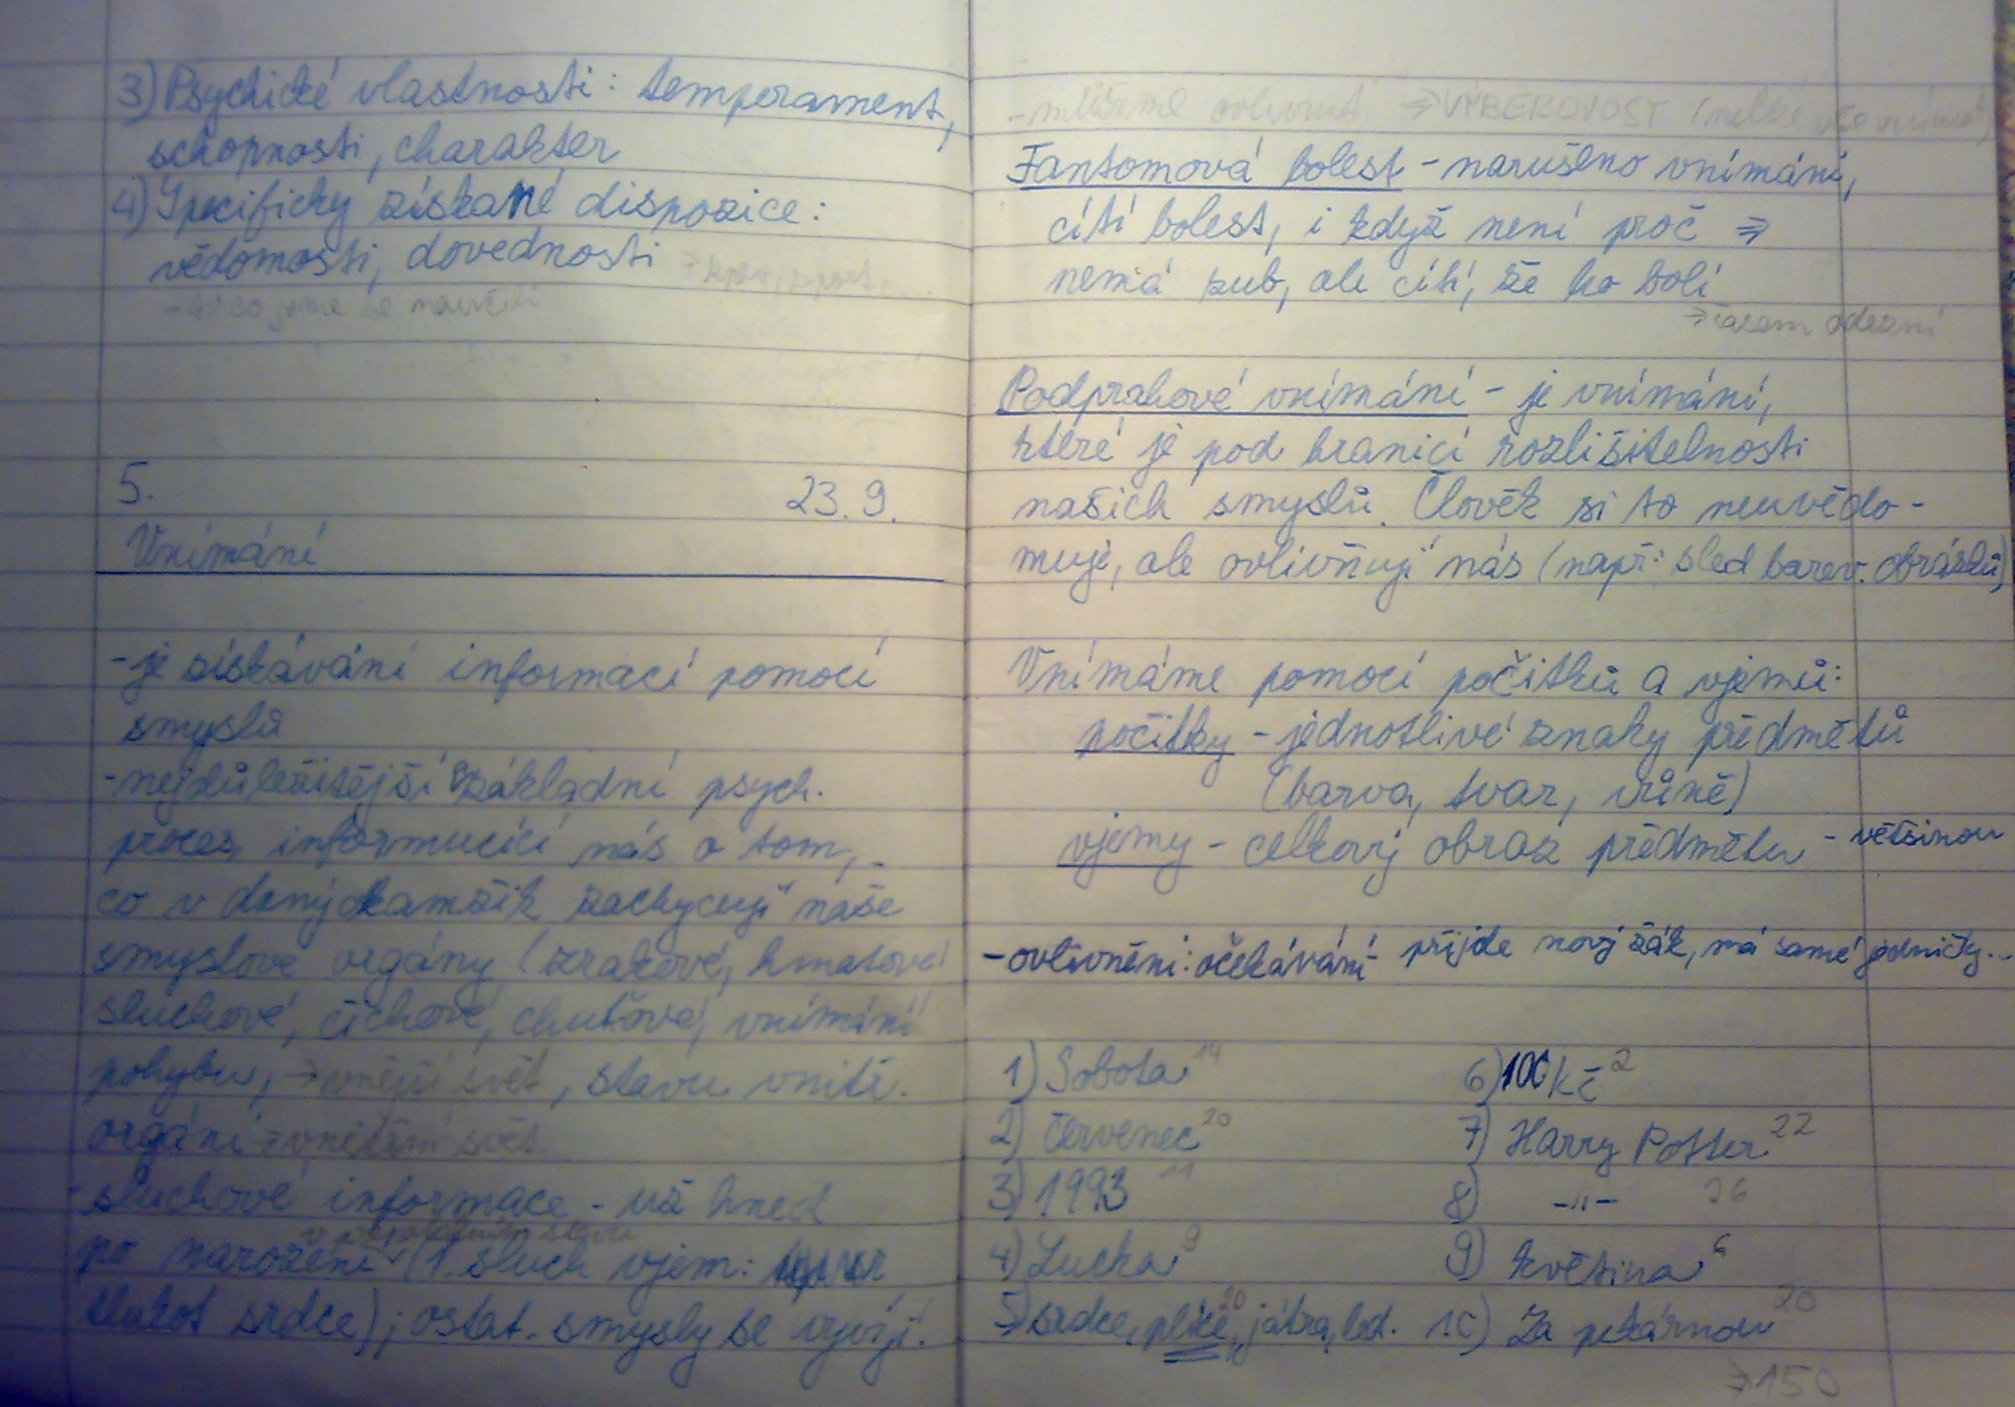 3) Psychické vlastnosti: temperament,
schopnosti, charakter
4) Specificky získané dispozice:
vědomosti, dovednosti
- to co jsme se naučili
5. 23.9.
Vnímání
- je získávání informací pomocí
smyslů
- nejdůležitější základní psych.
proces informující nás o tom,
co v daný okamžik zachycují naše
smyslové orgány (zrakové, hmatové
sluchové, čichové, chuťové, vnímání
pohybu, → vnější svět, stavu vnitř.
orgánů → vnitřní svět
- sluchové informace - už hned
po narození (1. sluch vjem:
tlukot srdce); ostat. smysly se vyvíjí.
- můžeme ovlivnit ⇒ VÝBĚROVOST (nelze vše vnímat)
Fantomová bolest - narušeno vnímání,
cítí bolest, i když není proč ⇒
nemá zub, ale cítí, že ho bolí
⇒ časem odezní
Podprahové vnímání - je vnímání,
které je pod hranicí rozlišitelnosti
našich smyslů. Člověk si to neuvědo-
muje, ale ovlivňují nás (např: sled barev. obrázků)
Vnímáme pomocí počitků a vjemů:
počitky - jednotlivé znaky předmětů
(barva, tvar, vůně)
vjemy - celkový obraz předmětu - většinou
- ovlivnění: očekávání - přijde nový žák, má samé jedničky...
1) Sobota 14
2) červenec 20
3) 1993 11
4) Lucka 9
5) srdce, plíce, 20 játra, led.
6) 100 Kč 2
7) Harry Potter 22
8) -"- 26
9) květina 6
10) Za pekárnou 20
⇒ 150